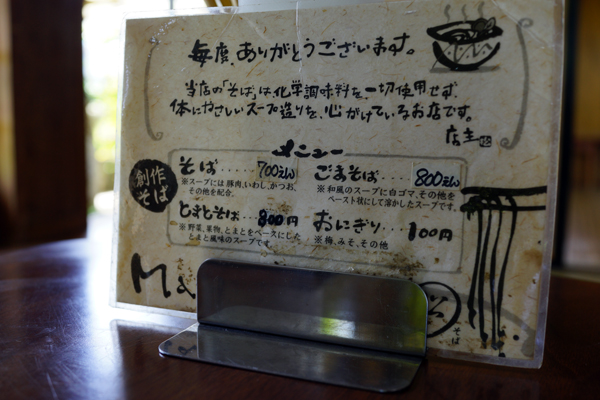 毎度、ありがとうございます。
当店の「そば」は、化学調味料を一切使用せず、
体にやさしいスープ造りを、心がけているお店です。
店主
メニュー
創作
そば
そば……700えん
※スープには豚肉、いわし、かつお、
その他を配合。
ごまそば……800えん
※和風のスープに白ゴマ、その他を
ペースト状にして溶かしたスープです。
とまとそば……800円
※野菜、果物、とまとをベースにした
とまと風味のスープです。
おにぎり……100円
※梅、みそ、その他
そば